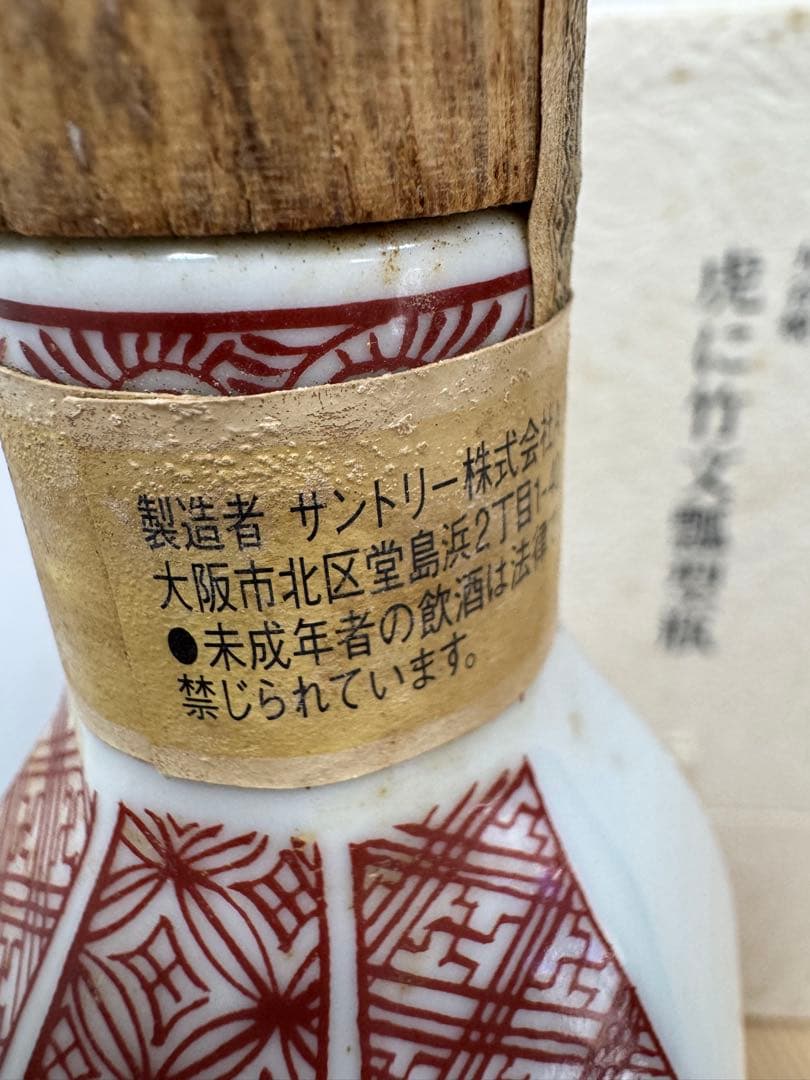 製造者 サントリー株式会社
大阪市北区堂島浜2丁目1-4
●未成年者の飲酒は法律で
禁じられています。
虎に竹文瓢型瓶